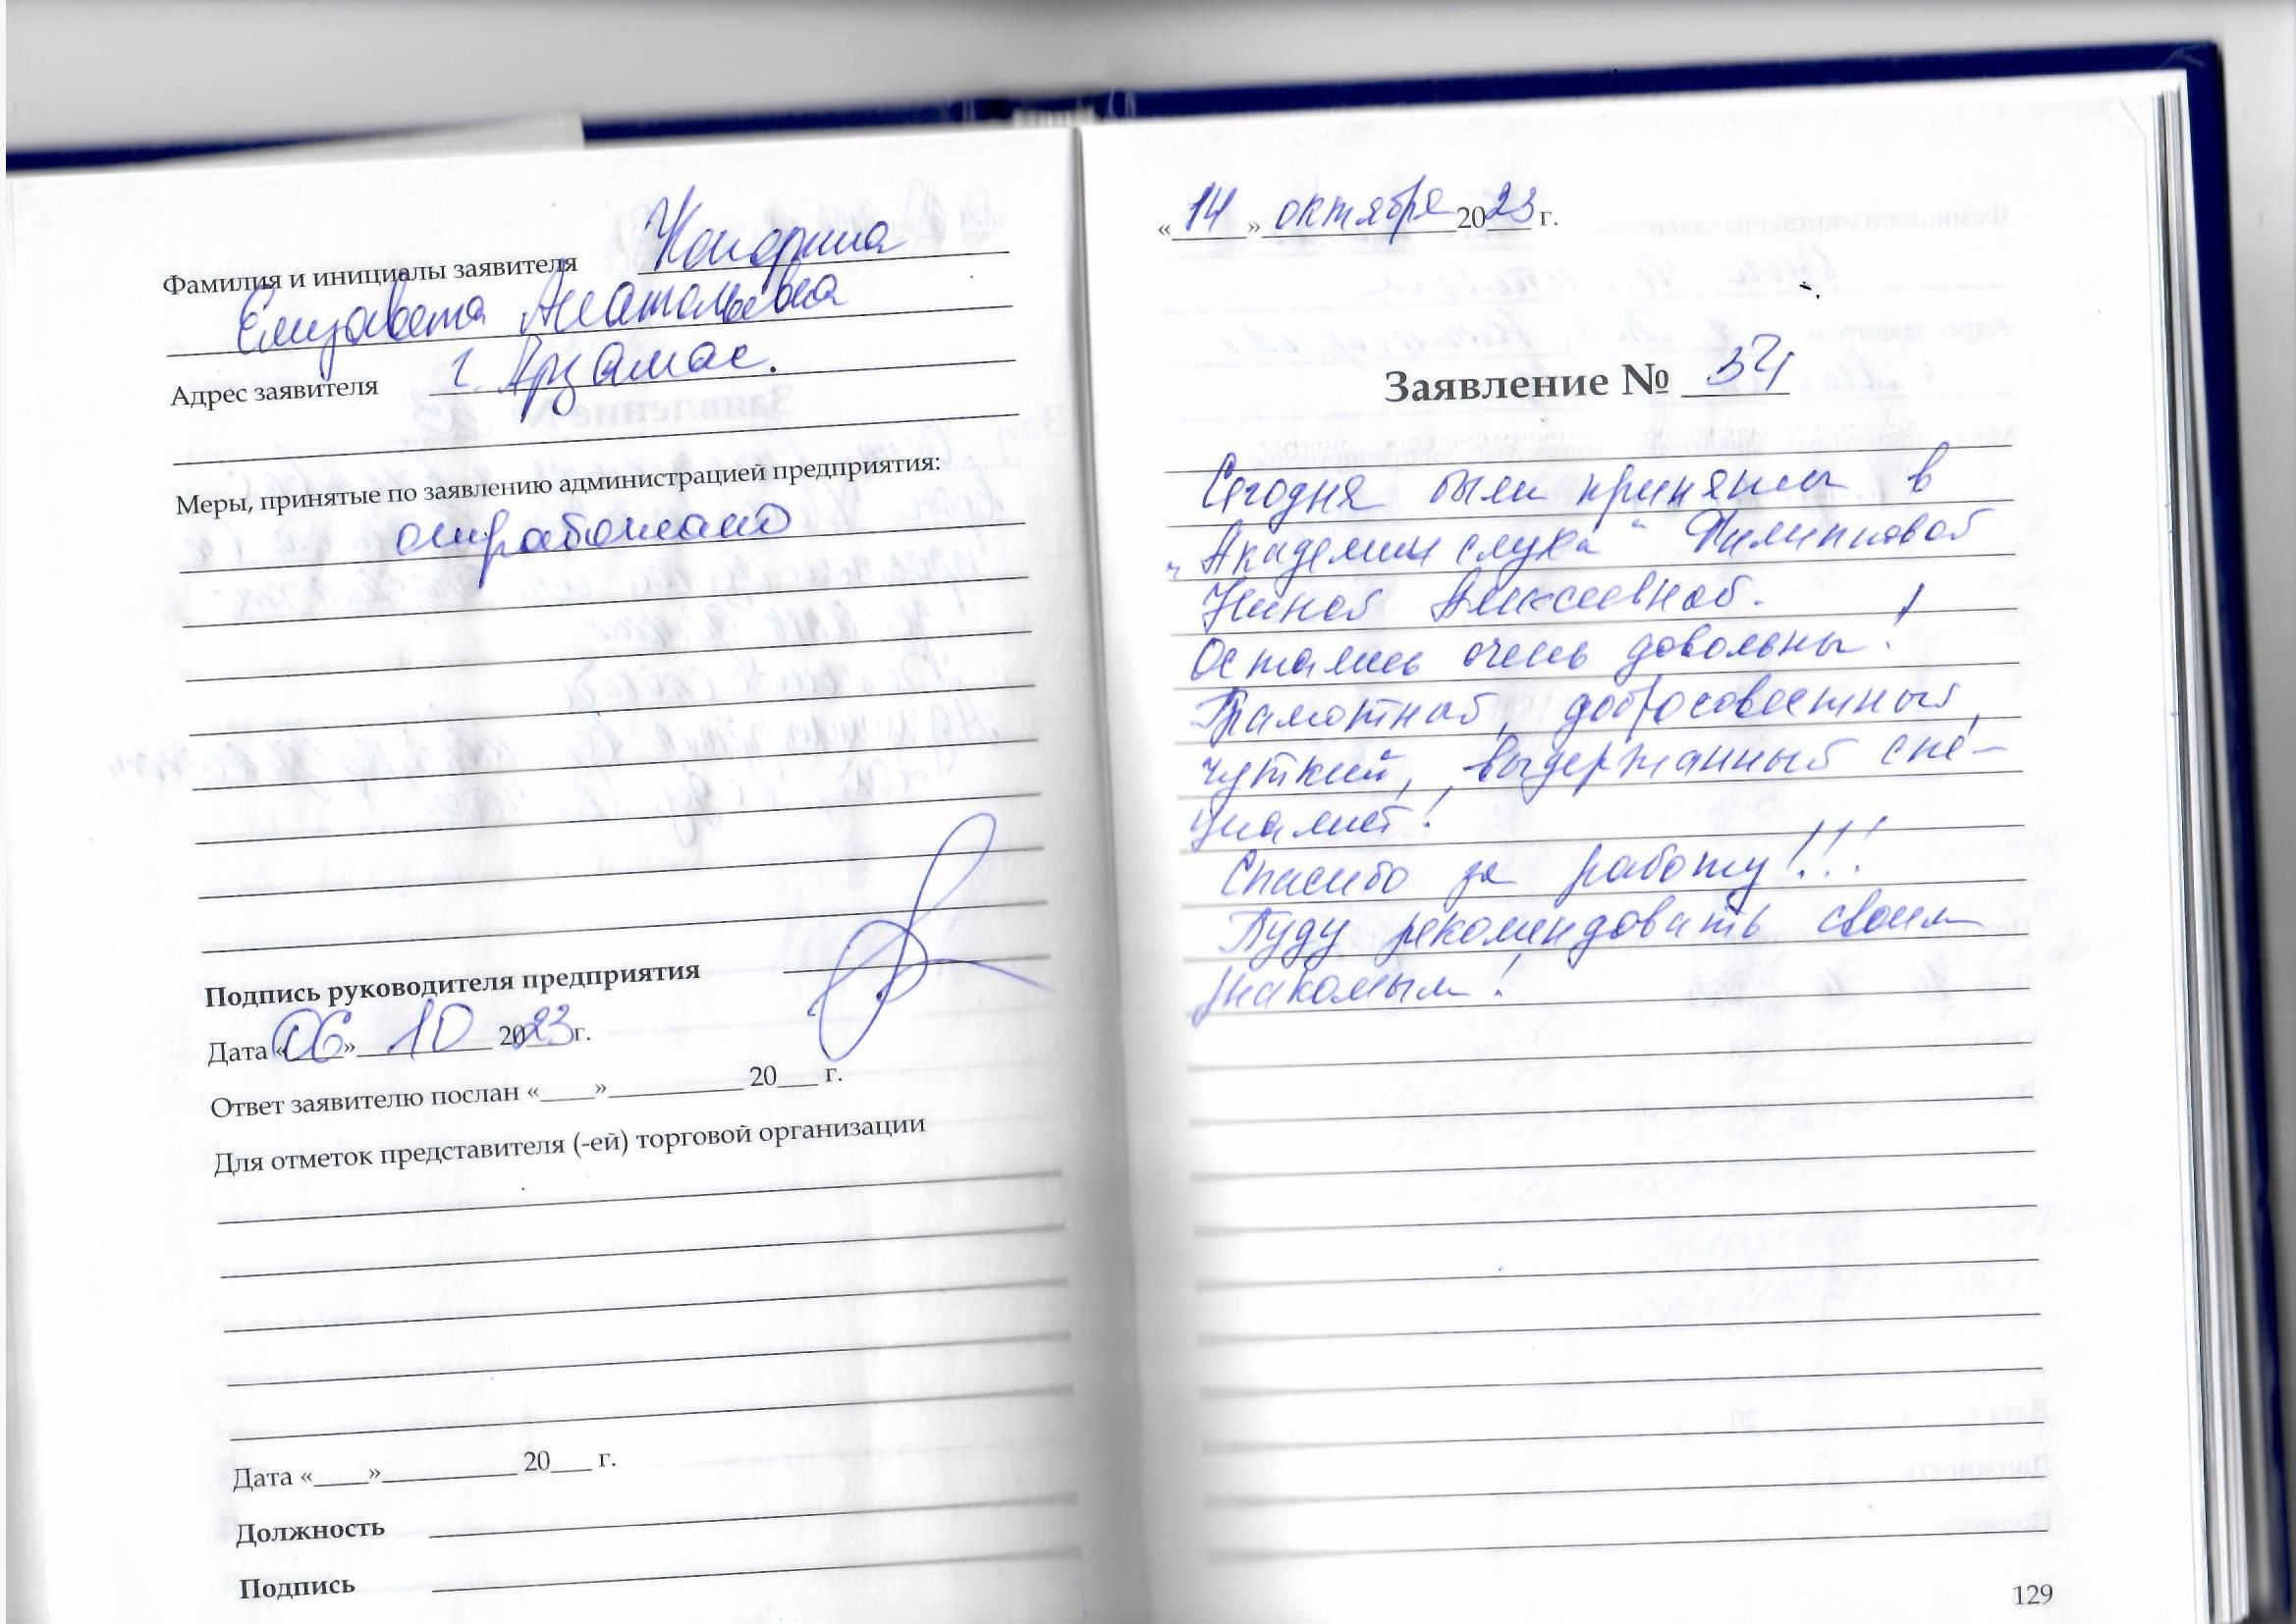 Фамилия и инициалы заявителя
Елизавета Анатольевна
Адрес заявителя г. Арзамас.
Меры, принятые по заявлению администрацией предприятия:
отработано
Подпись руководителя предприятия
Дата «06» 10 2023 г.
Ответ заявителю послан «____»__________ 20___ г.
Для отметок представителя (-ей) торговой организации
Дата «____»__________ 20___ г.
Должность
Подпись
«14» октября 2023 г.
Заявление № 34
Сегодня были приняты в
„Академии слуха“ Филипповой
Ниной Алексеевной.
Остались очень довольны!
Грамотный, добросовестный,
чуткий, выдержанный спе-
циалист!
Спасибо за работу!!!
Буду рекомендовать своим
знакомым!
129